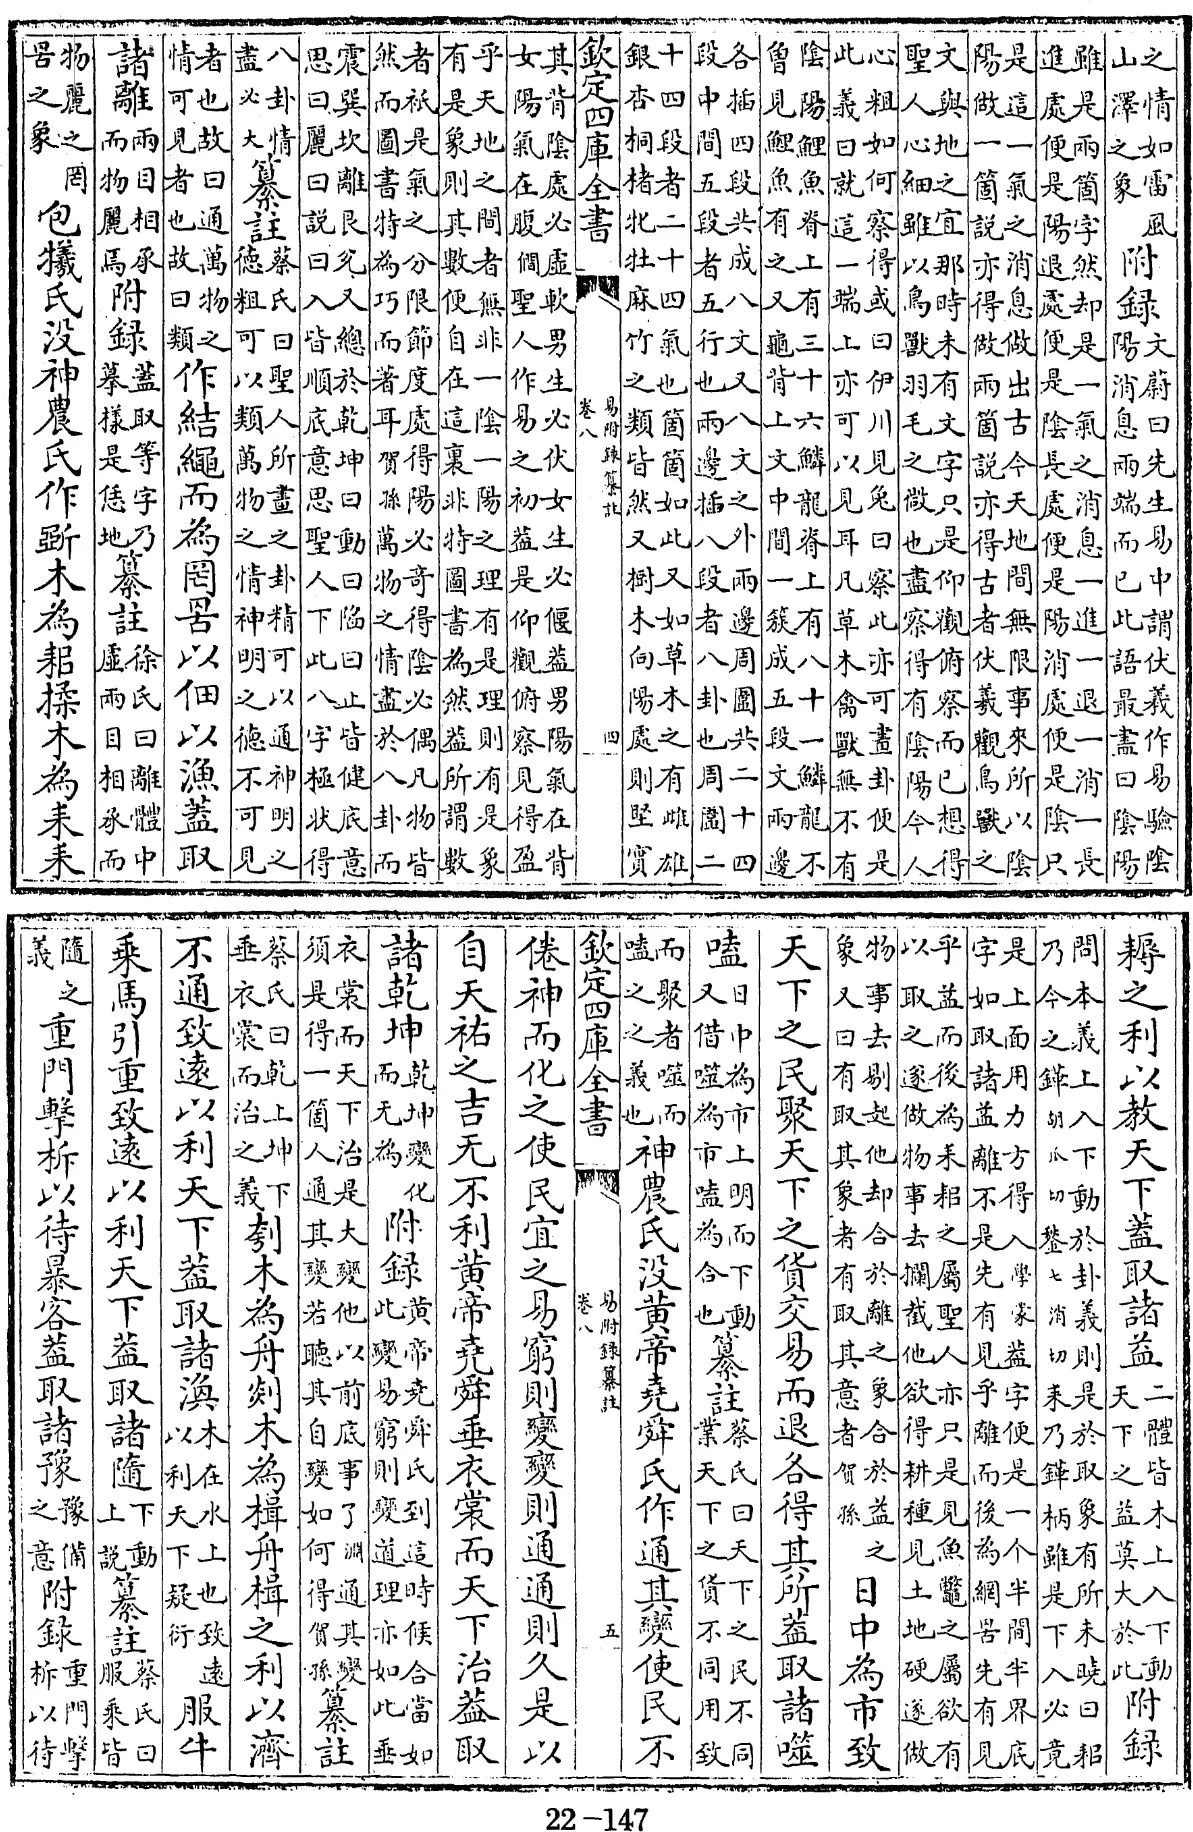 之情如雷風
山澤之象
附録
文蔚曰先生易中謂伏羲作易驗陰
陽消息兩端而已此語最盡曰陰陽
雖是兩箇字然却是一氣之消息一進一退一消一長
進處便是陽退處便是陰長處便是陽消處便是陰只
是這一氣之消息做出古今天地間無限事來所以陰
陽做一箇説亦得做兩箇説亦得古者伏羲觀鳥獸之
文與地之宜那時未有文字只是仰觀俯察而已想得
聖人心細雖以鳥獸羽毛之微也盡察得有陰陽今人
心粗如何察得或曰伊川見兔曰察此亦可畫卦便是
此義曰就這一端上亦可以見耳凡草木禽獸無不有
陰陽鯉魚脊上有三十六鱗龍脊上有八十一鱗龍不
曽見鯉魚有之又龜背上文中間一簇成五段文兩邊
各插四段共成八文又八文之外兩邊周圍共二十四
段中間五段者五行也兩邊插八段者八卦也周圍二
十四段者二十四氣也箇箇如此又如草木之有雌雄
銀杏桐楮牝牡麻竹之類皆然又樹木向陽處則堅實
欽定四庫全書
易附録纂註
卷八
四
其背陰處必虚軟男生必伏女生必偃蓋男陽氣在背
女陽氣在腹僩聖人作易之初蓋是仰觀俯察見得盈
乎天地之間者無非一陰一陽之理有是理則有是象
有是象則其數便自在這裏非特圖書為然蓋所謂數
者祇是氣之分限節度處得陽必奇得陰必偶凡物皆
然而圖書特為巧而著耳賀孫萬物之情盡於八卦而
震巽坎離艮兑又總於乾坤曰動曰陷曰止皆健底意
思曰麗曰説曰入皆順底意思聖人下此八字極狀得
八卦情
盡必大
纂註
蔡氏曰聖人所畫之卦精可以通神明之
德粗可以類萬物之情神明之德不可見
者也故曰通萬物之
情可見者也故曰類
作結繩而為罔罟以佃以漁蓋取
諸離
兩目相承
而物麗焉
附録
蓋取等字乃
摹樣是恁地
纂註
徐氏曰離體中
虚兩目相承而
物麗之罔
罟之象
包犧氏没神農氏作斵木為耜揉木為耒耒
耨之利以教天下蓋取諸益
二體皆木上入下動
天下之益莫大於此
附録
問本義上入下動於卦義則是於取象有所未曉曰耜
乃今之鏵胡瓜切鍫七消切耒乃鏵柄雖是下入必竟
是上面用力方得入學蒙益字便是一个半間半界底
字如取諸益離不是先有見乎離而後為網罟先有見
乎益而後為耒耜之屬聖人亦只是見魚鼈之屬欲有
以取之遂做物事去攔截他欲得耕種見土地硬遂做
物事去剔起他却合於離之象合於益之
象又曰有取其象者有取其意者賀孫
日中為市致
天下之民聚天下之貨交易而退各得其所蓋取諸噬
嗑
日中為市上明而下動
又借噬為市嗑為合也
纂註
蔡氏曰天下之民不同
業天下之貨不同用致
而聚者噬而
嗑之之義也
神農氏没黄帝堯舜氏作通其變使民不
欽定四庫全書
易附録纂註
卷八
五
倦神而化之使民宜之易窮則變變則通通則久是以
自天祐之吉无不利黄帝堯舜垂衣裳而天下治蓋取
諸乾坤
乾坤變化
而无為
附録
黄帝堯舜氏到這時候合當如
此變易窮則變道理亦如此垂
衣裳而天下治是大變他以前底事了淵通其變
須是得一箇人通其變若聽其自變如何得賀孫
纂註
蔡氏曰乾上坤下
垂衣裳而治之義
刳木為舟剡木為楫舟楫之利以濟
不通致遠以利天下蓋取諸渙
木在水上也致遠
以利天下疑衍
服牛
乘馬引重致遠以利天下蓋取諸隨
下動
上説
纂註
蔡氏曰
服乘皆
隨之
義
重門擊柝以待暴客蓋取諸豫
豫備
之意
附録
重門擊
柝以待
22-147